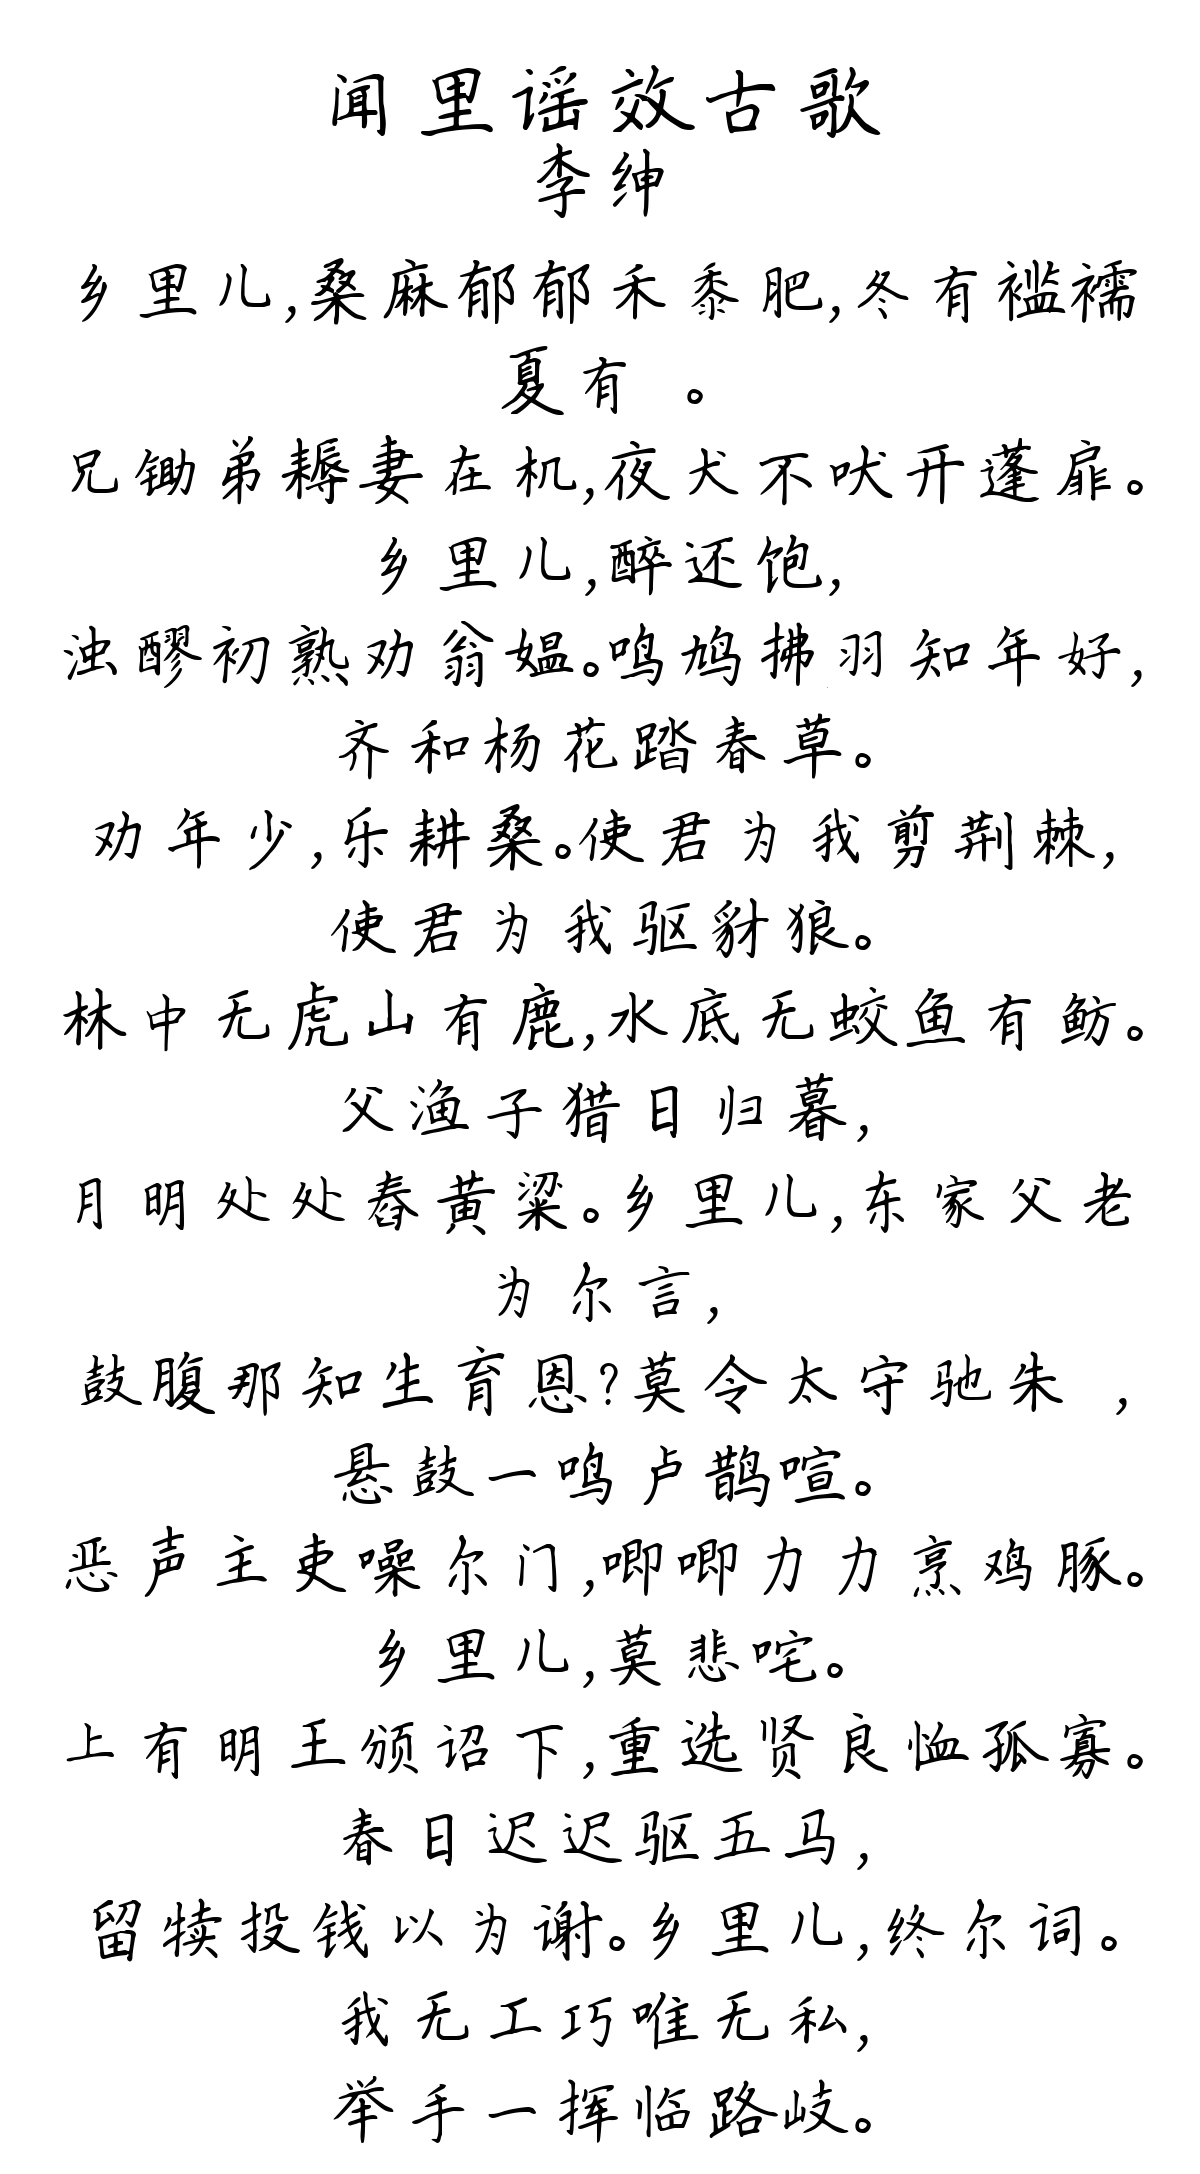 闻里谣效古歌
李绅
乡里儿,桑麻郁郁禾黍肥,冬有褴襦
夏有 。
兄锄弟耨妻在机,夜犬不吠开蓬扉。
乡里儿,醉还饱,
浊醪初熟劝翁媪。鸣鸠拂羽知年好,
齐和杨花踏春草。
劝年少,乐耕桑。使君为我剪荆棘,
使君为我驱豺狼。
林中无虎山有鹿,水底无蛟鱼有鲂。
父渔子猎日归暮,
月明处处舂黄粱。乡里儿,东家父老
为尔言,
鼓腹那知生育恩?莫令太守驰朱 ,
悬鼓一鸣卢鹊喧。
恶声主吏噪尔门,唧唧力力烹鸡豚。
乡里儿,莫悲咤。
上有明王颁诏下,重选贤良恤孤寡。
春日迟迟驱五马,
留犊投钱以为谢。乡里儿,终尔词。
我无工巧唯无私,
举手一挥临路岐。